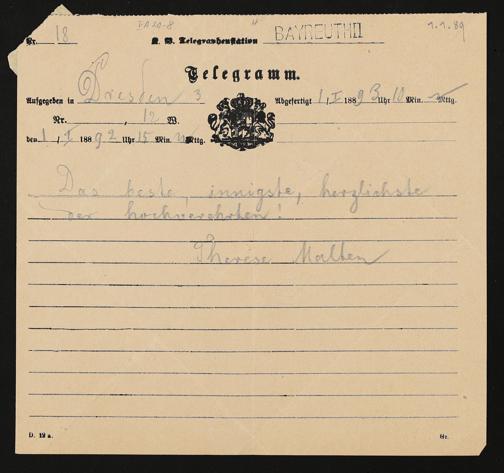 Nr. 18 K. B. Telegraphenstation BAYREUTH II 1.1.89
Telegramm.
Aufgegeben in Dresden 3 Abgefertigt 1/I 1889 3 Uhr 10 Min. Mttg.
Nr. 12 W.
den 1/I 1889 2 Uhr 15 Min. Mttg.
Das beste, innigste, herzlichste
der hochverehrten!
Therese Malten
D. 12 a.